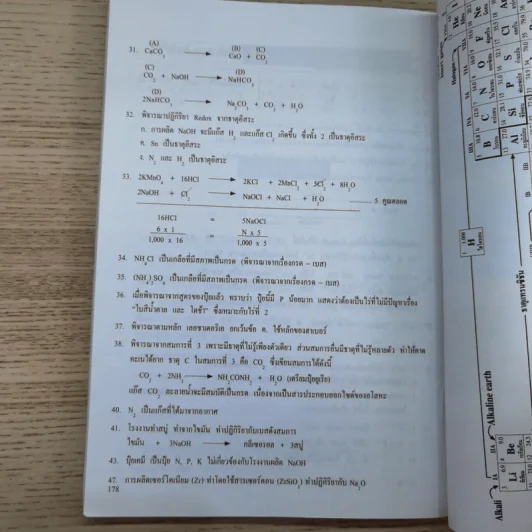 (A) (B) (C)
31. CaCO3 → CaO + CO2
(C) (D)
CO2 + NaOH → NaHCO3
(D)
2NaHCO3 → Na2CO3 + CO2 + H2O
32. พิจารณาปฏิกิริยา Redox จากธาตุอิสระ
ก. การผลิต NaOH จะมีแก๊ส H2 และแก๊ส Cl2 เกิดขึ้น ซึ่งทั้ง 2 เป็นธาตุอิสระ
ค. Sn เป็นธาตุอิสระ
ง. N2 และ H2 เป็นธาตุอิสระ
33. 2KMnO4 + 16HCl → 2KCl + 2MnCl2 + 5Cl2 + 8H2O
2NaOH + Cl2 → NaOCl + NaCl + H2O ..... 5 คูณตลอด
16HCl = 5NaOCl
6 x 1 N x 5
1,000 x 16 = 1,000 x 5
34. NH4Cl เป็นเกลือที่มีสภาพเป็นกรด (พิจารณาจากเรื่องกรด - เบส)
35. (NH4)2SO4 เป็นเกลือที่มีสภาพเป็นกรด (พิจารณาจากเรื่องกรด - เบส)
36. เมื่อพิจารณาจากสูตรของปุ๋ยแล้ว ทราบว่า ปุ๋ยนี้มี P น้อยมาก แสดงว่าต้องเป็นไร่ที่ไม่มีปัญหาเรื่อง
"ใบสีน้ำตาล และ โตช้า" ซึ่งเหมาะกับไร่ที่ 2
37. พิจารณาตามหลัก เลอชาเตอริเอ ยกเว้นข้อ ค. ใช้หลักของฮาเบอร์
38. พิจารณาจากสมการที่ 3 เพราะมีธาตุที่ไม่รู้เพียงตัวเดียว ส่วนสมการอื่นมีธาตุที่ไม่รู้หลายตัว ทำให้คาด
คะเนได้ยาก ธาตุ C ในสมการที่ 3 คือ CO2 ซึ่งเขียนสมการได้ดังนี้
CO2 + 2NH3 → NH2CONH2 + H2O (เตรียมปุ๋ยยูเรีย)
แก๊ส CO2 ละลายน้ำจะมีสมบัติเป็นกรด เนื่องจากเป็นสารประกอบออกไซด์ของอโลหะ
40. N2 เป็นแก๊สที่ได้มาจากอากาศ
41. โรงงานทำสบู่ ทำจากไขมัน ทำปฏิกิริยากับเบสดังสมการ
ไขมัน + 3NaOH → กลีเซอรอล + 3สบู่
43. ปุ๋ยเคมี เป็นปุ๋ย N, P, K ไม่เกี่ยวข้องกับโรงงานผลิต NaOH
47. การผลิตเซอร์โคเนียม (Zr) ทำโดยใช้สารเซอร์คอน (ZrSiO4) ทำปฏิกิริยากับ Na2O
178
Alkali
Alkaline earth
ธาตุแทรนซิชัน
Halogen
IA
IIA
H
Li
Be
B
C
N
O
F
Ne
Al
Si
P
S
Cl